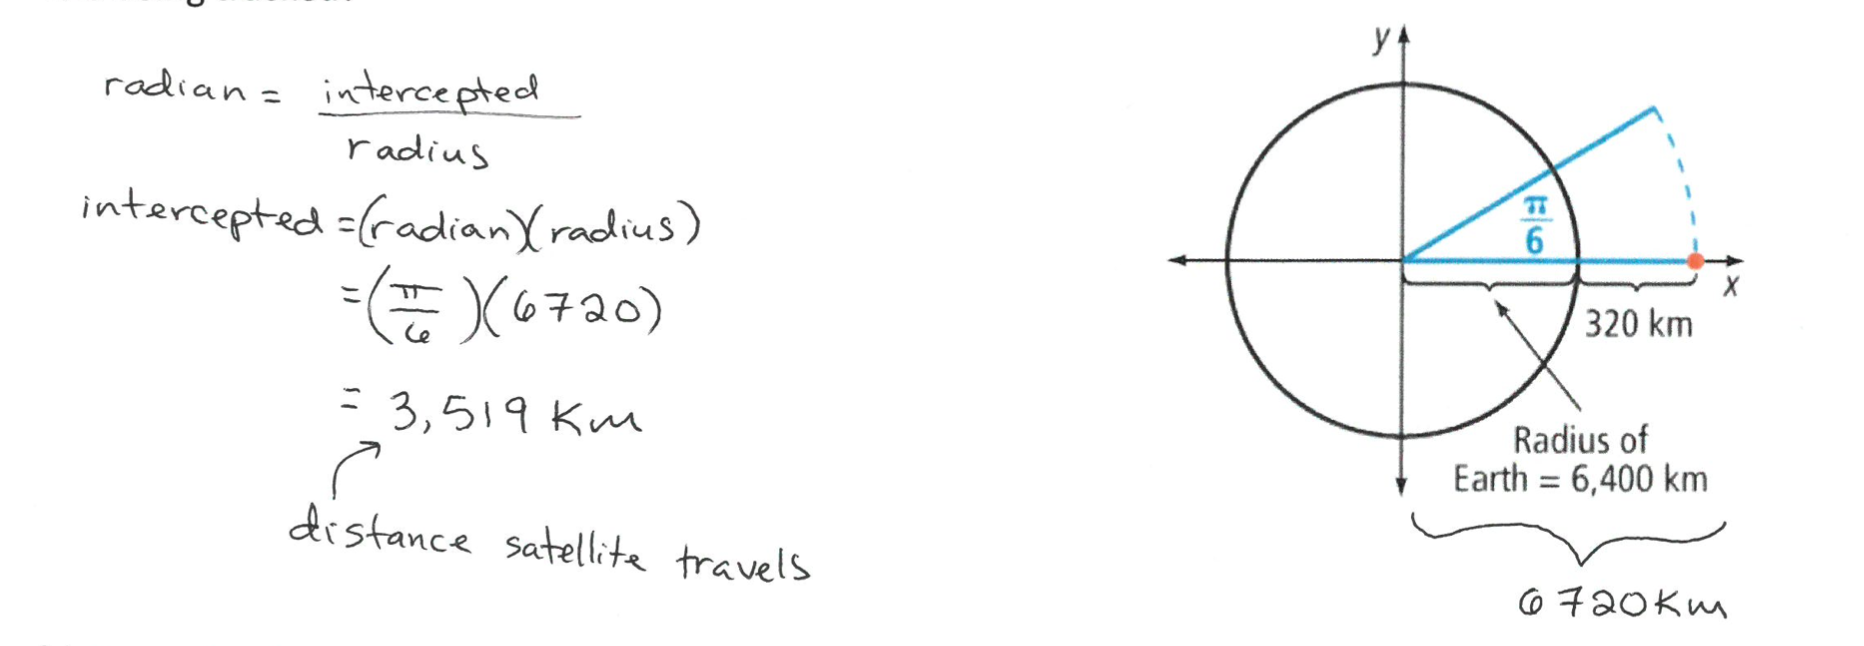 radian = intercepted
radius
intercepted = (radian)(radius)
= (π/6)(6720)
= 3,519 Km
distance satellite travels
y
π
6
x
320 km
Radius of
Earth = 6,400 km
6720Km